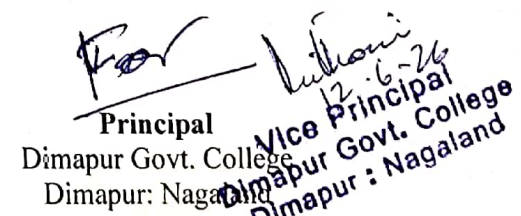 For
12.6-26
Principal
Dimapur Govt. College
Dimapur: Nagaland
Vice Principal
Dimapur Govt. College
Dimapur : Nagaland